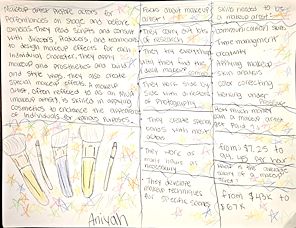 Makeup artist prepare actors for
Performances on stage and before
cameras. They read scripts and consult
with directors, Producers, and technicians
to design makeup effects for each
individual character. They apply
makeup and prosthetics and build
and style wigs. They also create
special makeup effects. A makeup
artist, often referred to as an
makeup artist, is skilled in applying
cosmetics to enhance the appearance
of individuals for various purposes.
Aniyah
Facts about makeup
artist!
They carry out bits
of research
They try everything
with they find the
makeup
They work side by
side with directors
of photography
They create special
bonds with most
They work
many hours
They develope
makeup techniques
for specific scenes
Skills needed to be
a makeup artist!
Communication skills
Time management
creativity
Airbrushing makeup
skin analysis
color correcting
working under
How much money
does a makeup artist
get paid
from $7.25 to
per hour
What is the average
salary of a makeup
from $43K to
$67K